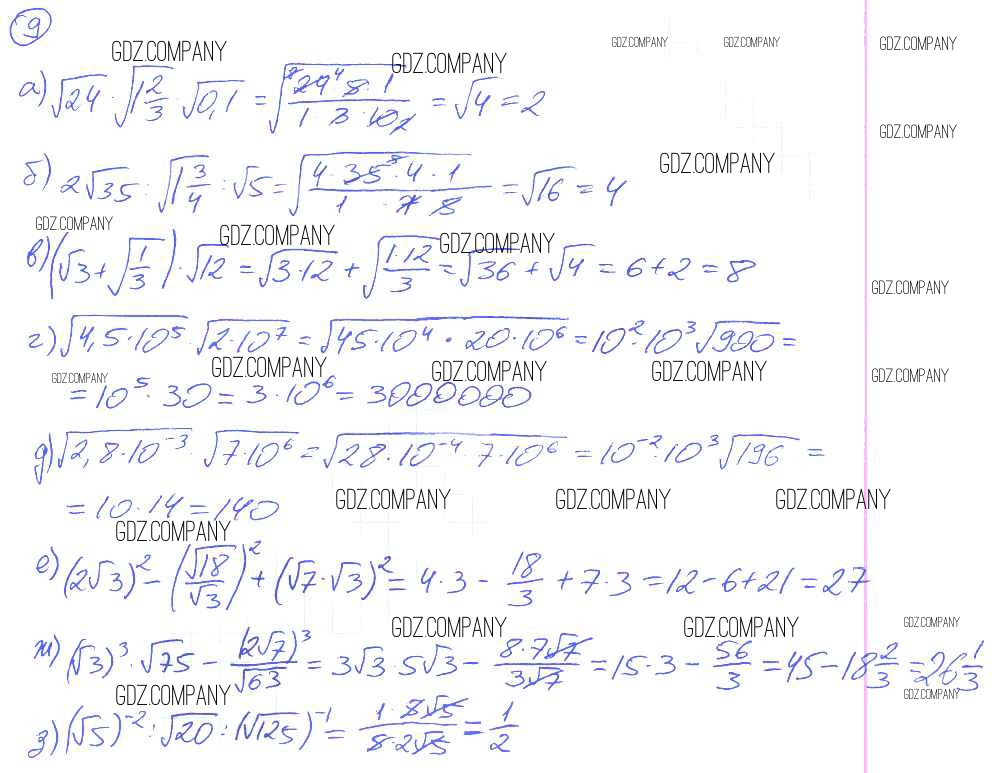 9
GDZ.COMPANY GDZ.COMPANY GDZ.COMPANY GDZ.COMPANY GDZ.COMPANY
а) √24 · √1 2/3 · √0,1 = √(24 · 5 · 1)/(1 · 3 · 10) = √4 = 2
GDZ.COMPANY
GDZ.COMPANY
б) 2√35 : √1 3/4 : √5 = √(4 · 35 · 4 · 1)/(1 · 7 · 5) = √16 = 4
GDZ.COMPANY GDZ.COMPANY GDZ.COMPANY
в) (√3 + √1/3) · √12 = √3·12 + √(1·12)/3 = √36 + √4 = 6+2 = 8
GDZ.COMPANY
г) √4,5·10⁵ · √2·10⁷ = √45·10⁴ · 20·10⁶ = 10²·10³√900 =
GDZ.COMPANY GDZ.COMPANY GDZ.COMPANY GDZ.COMPANY GDZ.COMPANY
= 10⁵ · 30 = 3·10⁶ = 3000000
д) √2,8·10⁻³ · √7·10⁶ = √28·10⁻⁴ · 7·10⁶ = 10⁻²·10³√196 =
= 10·14 = 140
GDZ.COMPANY GDZ.COMPANY GDZ.COMPANY
GDZ.COMPANY
е) (2√3)² − (√18/√3)² + (√7·√3)² = 4·3 − 18/3 + 7·3 = 12−6+21 = 27
GDZ.COMPANY GDZ.COMPANY GDZ.COMPANY
ж) (√3)³ · √75 − (2√7)³/√63 = 3√3 · 5√3 − (8·7√7)/(3√7) = 15·3 − 56/3 = 45 − 18 2/3 = 26 1/3
GDZ.COMPANY GDZ.COMPANY
з) (√5)⁻² : √20 : (√125)⁻¹ = (1·5√5)/(5·2√5) = 1/2